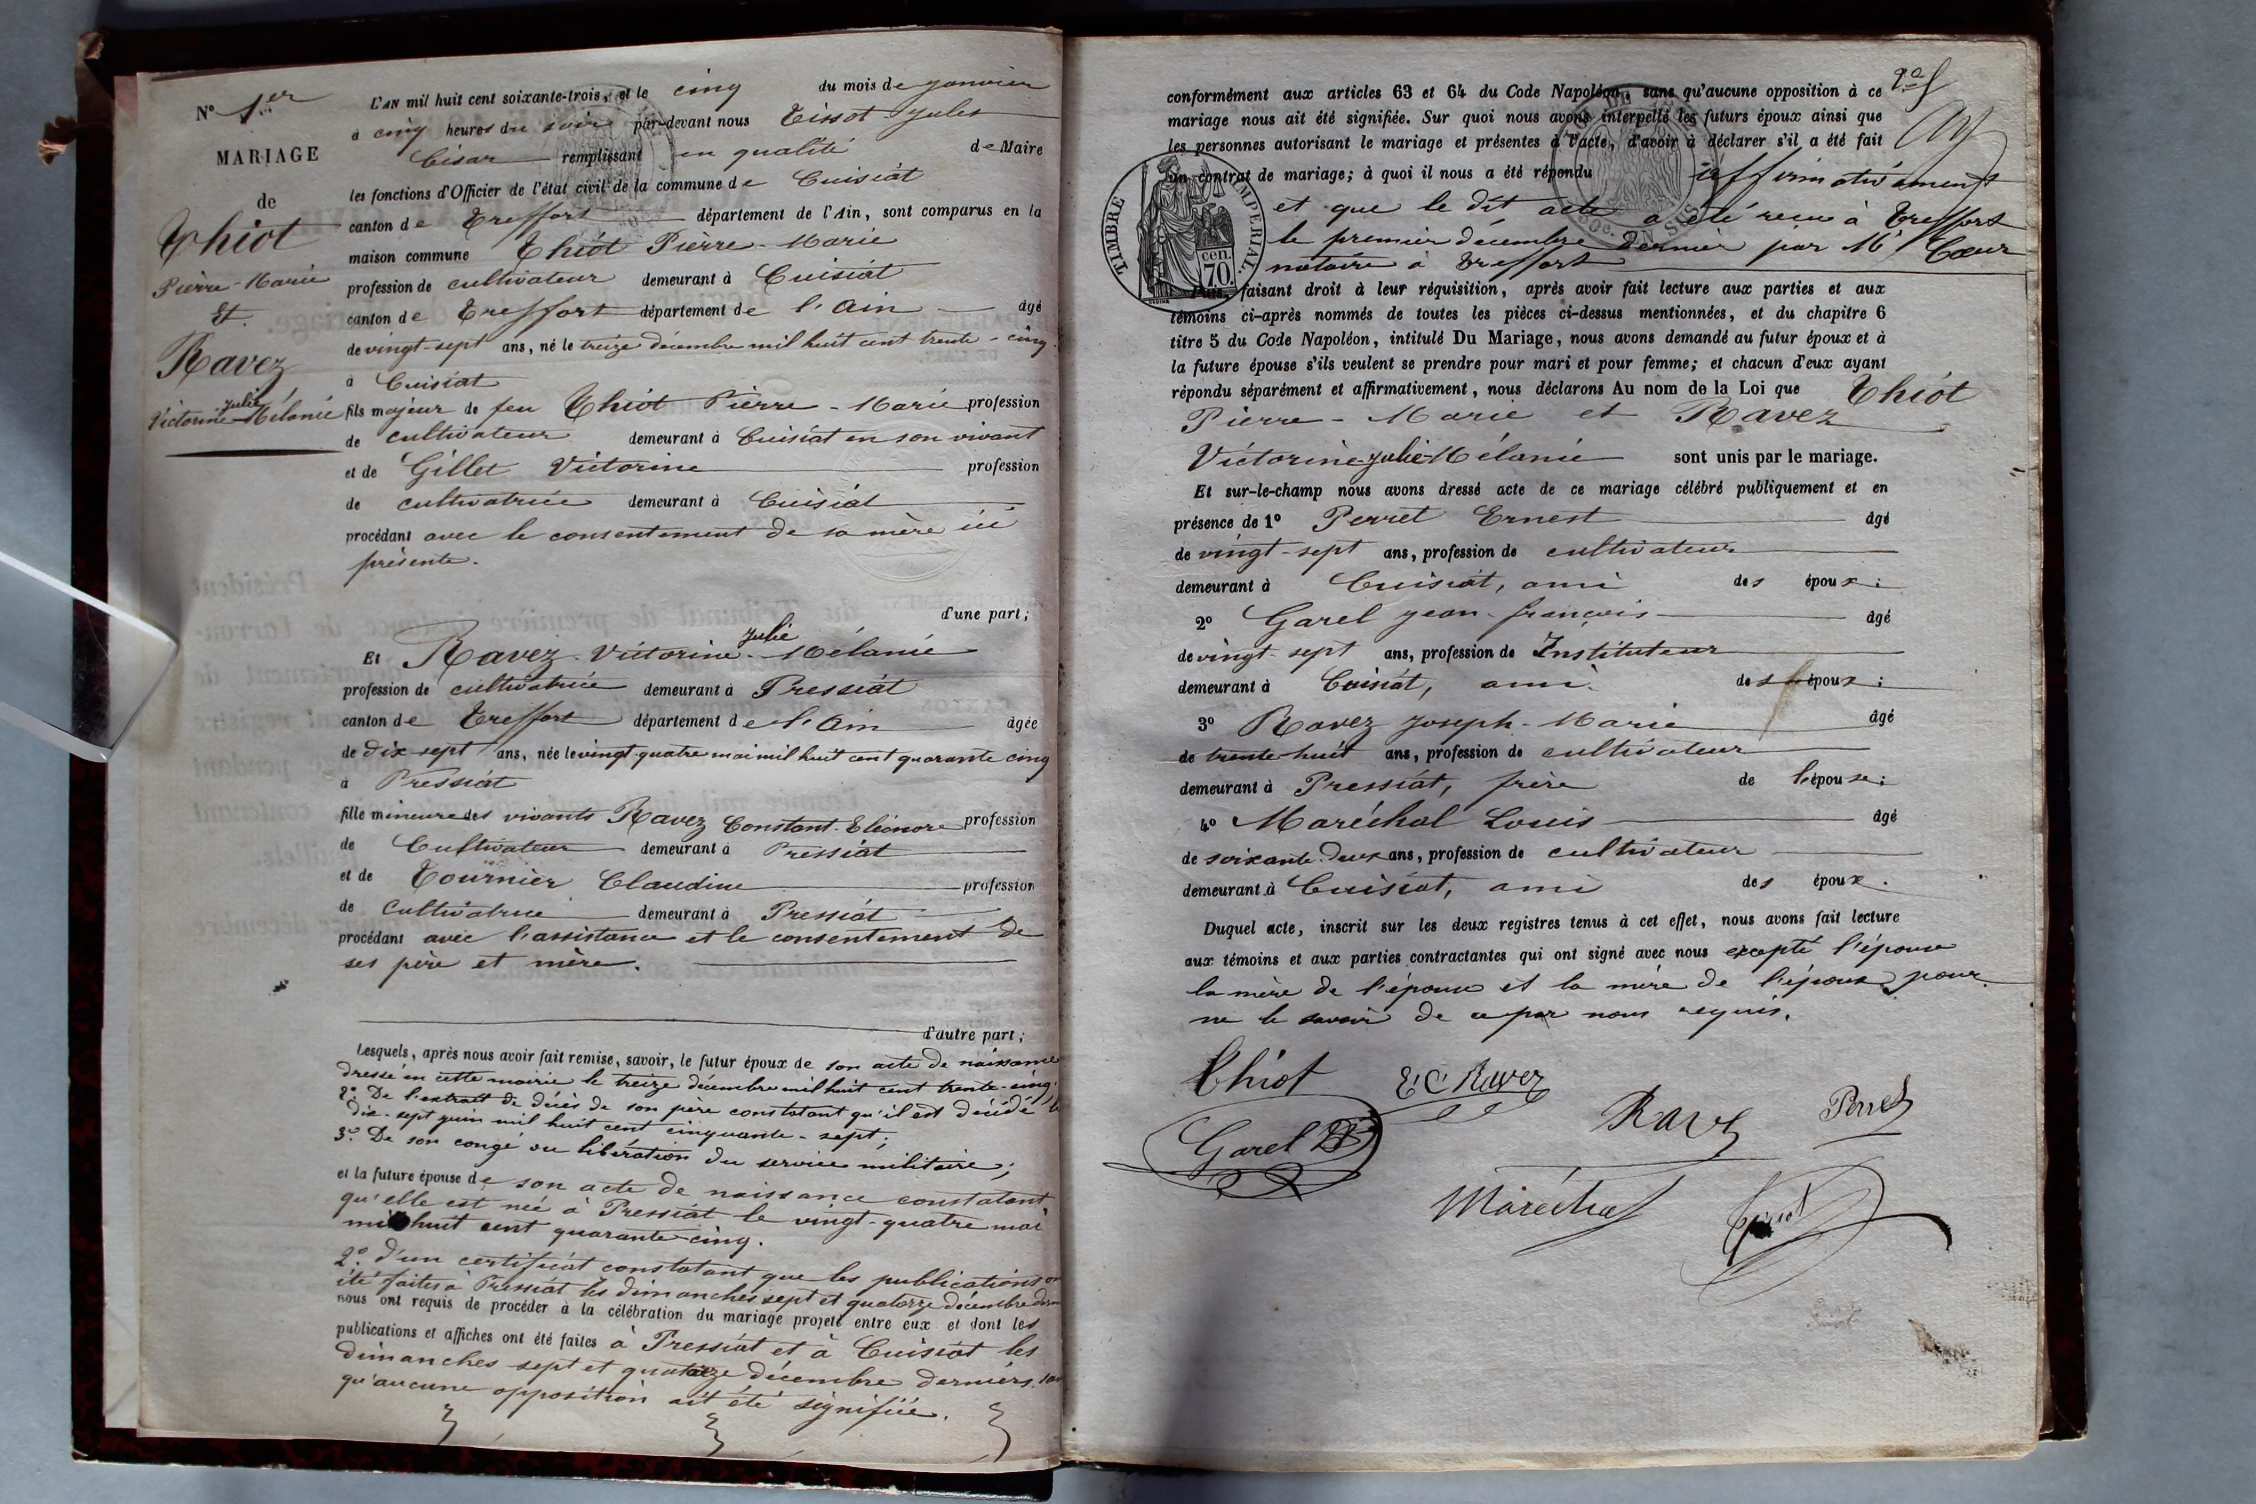 N° 1.er
MARIAGE
de
Thiot
Pierre-Marie
Et.
Ravez
Julie
Victorine-Mélanie
L'AN mil huit cent soixante-trois, et le cinq du mois de janvier
à cinq heures du soir par-devant nous Tissot Jules
César remplissant en qualité de Maire
les fonctions d'Officier de l'état civil de la commune de Cuisiat
canton de Treffort département de l'Ain, sont comparus en la
maison commune Thiot Pierre-Marie
profession de cultivateur demeurant à Cuisiat
canton de Treffort département de l'Ain âgé
de vingt-sept ans, né le treize décembre mil huit cent trente-cinq
à Cuisiat
fils majeur de feu Thiot Pierre-Marie profession
de cultivateur demeurant à Cuisiat en son vivant
et de Gillet Victorine profession
de cultivatrice demeurant à Cuisiat
procédant avec le consentement de sa mère ici
présente.
d'une part;
Julie
Et Ravez Victorine-Mélanie
profession de cultivatrice demeurant à Pressiat
canton de Treffort département de l'Ain âgée
de dix-sept ans, née le vingt-quatre mai mil huit cent quarante cinq
à Pressiat
fille mineure des vivants Ravez Constant-Eléonore profession
de Cultivateur demeurant à Pressiat
et de Tournier Claudine profession
de Cultivatrice demeurant à Pressiat
procédant avec l'assistance et le consentement de
ses père et mère.
d'autre part;
Lesquels, après nous avoir fait remise, savoir, le futur époux de son acte de naissance
dressé en cette mairie le treize décembre mil huit cent trente-cinq.
2°. De l'extrait de décès de son père constatant qu'il est décédé le
dix-sept juin mil huit cent cinquante-sept;
3°. De son congé ou libération du service militaire;
et la future épouse de son acte de naissance constatant
qu'elle est née à Pressiat le vingt-quatre mai
mil huit cent quarante-cinq.
2°. d'un certificat constatant que les publications on
été faites à Pressiat les dimanches sept et quatorze décembre dern
nous ont requis de procéder à la célébration du mariage projeté entre eux et dont les
publications et affiches ont été faites à Pressiat et à Cuisiat les
dimanches sept et quatorze décembre derniers, san
qu'aucune opposition ait été signifiée.
conformément aux articles 63 et 64 du Code Napoléon, sans qu'aucune opposition à ce
mariage nous ait été signifiée. Sur quoi nous avons interpellé les futurs époux ainsi que
les personnes autorisant le mariage et présentes à l'acte, d'avoir à déclarer s'il a été fait
un contrat de mariage; à quoi il nous a été répondu affirmativement
et que le dit acte a été reçu à Treffort
le premier décembre dernier par Me Cœur
notaire à Treffort
TIMBRE IMPERIAL.
cen.
70.
Puis, faisant droit à leur réquisition, après avoir fait lecture aux parties et aux
témoins ci-après nommés de toutes les pièces ci-dessus mentionnées, et du chapitre 6
titre 5 du Code Napoléon, intitulé Du Mariage, nous avons demandé au futur époux et à
la future épouse s'ils veulent se prendre pour mari et pour femme; et chacun d'eux ayant
répondu séparément et affirmativement, nous déclarons Au nom de la Loi que Thiot
Pierre-Marie et Ravez
Victorine-Julie-Mélanie sont unis par le mariage.
Et sur-le-champ nous avons dressé acte de ce mariage célébré publiquement et en
présence de 1° Perret Ernest âgé
de vingt-sept ans, profession de cultivateur
demeurant à Cuisiat, ami des époux;
2° Garel Jean-françois âgé
de vingt-sept ans, profession de Instituteur
demeurant à Cuisiat, ami des époux;
3° Ravez Joseph-Marie âgé
de trente-huit ans, profession de cultivateur
demeurant à Pressiat, frère de l'épouse;
4° Maréchal Louis âgé
de soixante-deux ans, profession de cultivateur
demeurant à Cuisiat, ami des époux.
Duquel acte, inscrit sur les deux registres tenus à cet effet, nous avons fait lecture
aux témoins et aux parties contractantes qui ont signé avec nous excepté l'épouse
la mère de l'épouse et la mère de l'époux pour
ne le savoir de ce par nous requis.
Thiot E. C. Ravez
Ravez Perret
Garel
Maréchal Tissot